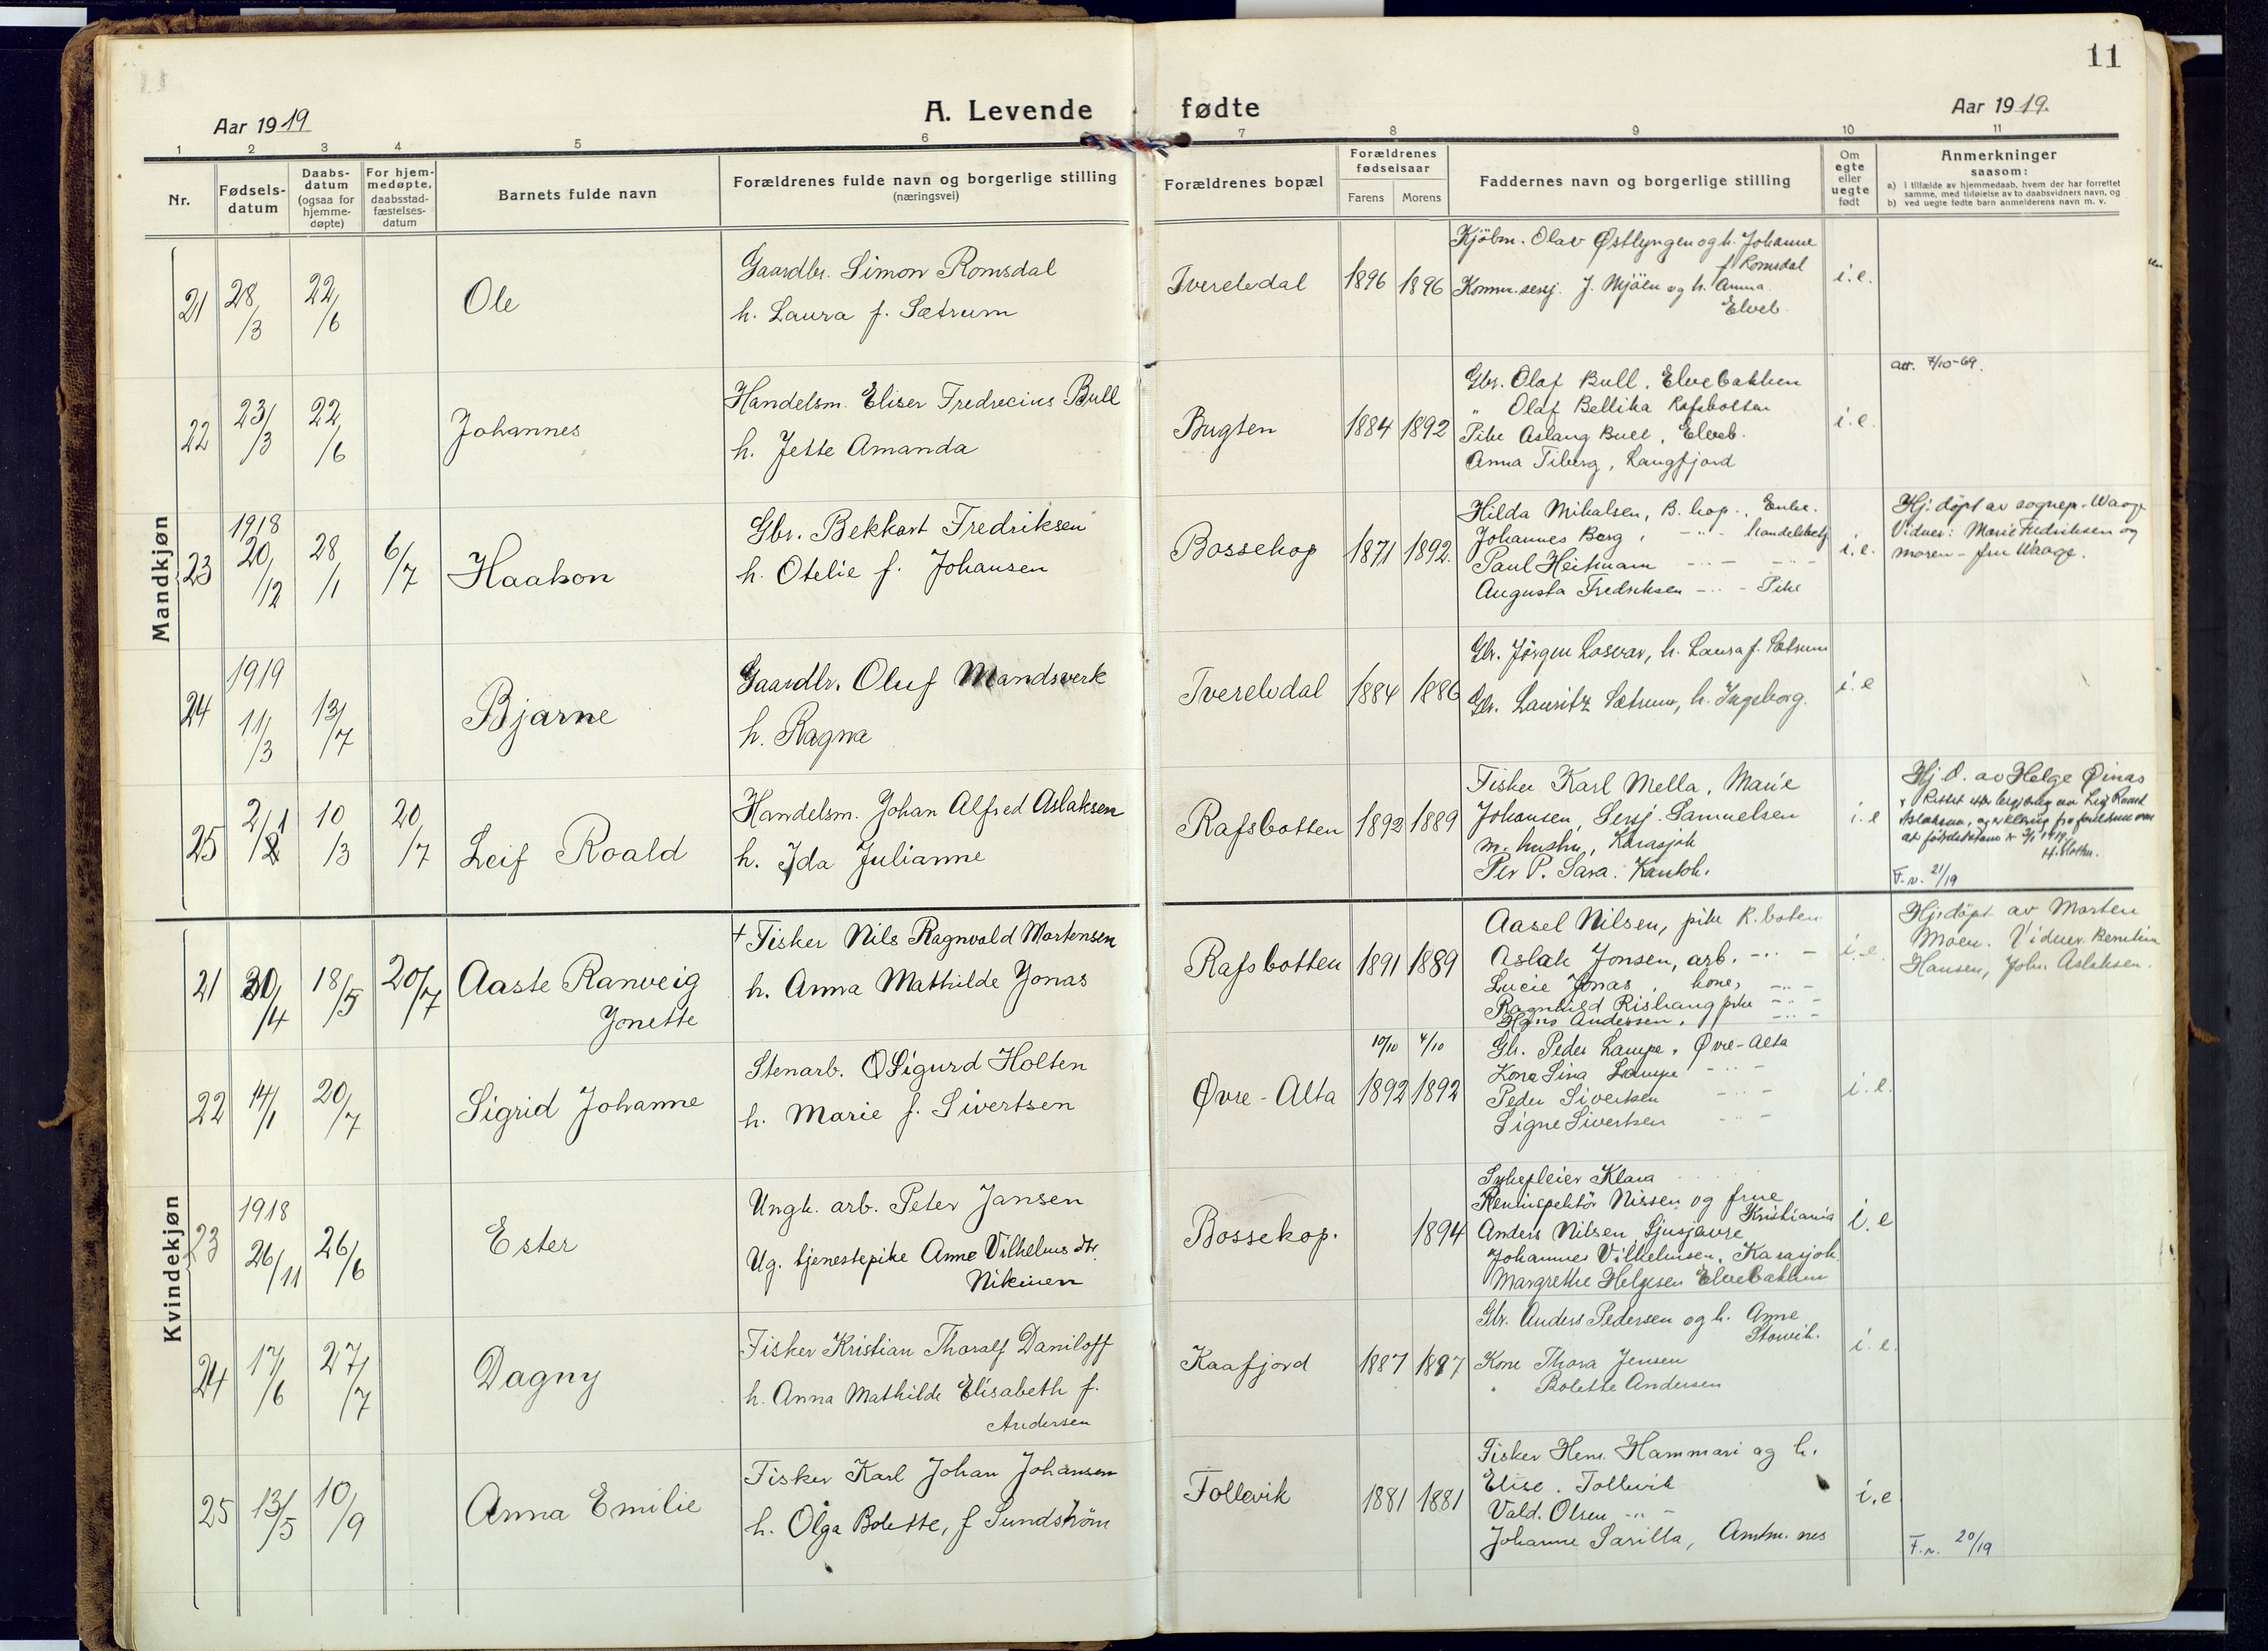 11
Aar 1919
A. Levende fødte
Aar 1919.
1 2 3 4 5 6 7 8 9 10 11
Nr.
Fødsels-
datum
Daabs-
datum
(ogsaa for
hjemme-
døpte)
For hjem-
medøpte,
daabsstad-
fæstelses-
datum
Barnets fulde navn
Forældrenes fulde navn og borgerlige stilling
(næringsvei)
Forældrenes bopæl
Forældrenes
fødselsaar
Farens Morens
Faddernes navn og borgerlige stilling
Om
egte
eller
uegte
født
Anmerkninger
saasom:
a) i tilfælde av hjemmedaab, hvem der har forrettet
samme, med tilføielse av to daabsvidners navn, og
b) ved uegte fødte barn anmelderens navn m. v.
Mandkjøn
21 28/3 22/6 Ole
Gaardbr. Simon Romsdal
h. Laura f. Sætrum
Tverelvdal 1896 1896
Kjöbm. Olav Østlyngen og h. Johanne
f. Romsdal
Komm.sersj. J. Mjöen og h. Anna
Elveb.
i. e.
22 23/3 22/6 Johannes
Handelsm. Eliser Fredrecius Bull
h. Jette Amanda
Bugten 1884 1892
Gbr. Olaf Bull, Elvebakken
" Olaf Bellika Rafsbotten
Pike Aslaug Bull, Elveb.
Anna Tiberg, Langfjord
i. e.
att. 7/10-69.
23 1918 20/12 28/1 6/7 Haakon
Gbr. Bekkart Fredriksen
h. Otelie f. Johansen
Bossekop 1871 1892.
Hilda Mikalsen, B.kop., Enke.
Johannes Borg, -"- handelsbetj
Paul Heitmann -"- -"-
Augusta Fredriksen -"- Pike
i. e.
Hj. döpt av sognepr. Waage
Vidner: Marie Fredriksen og
moren - fru Waage.
24 1919 11/3 13/7 Bjarne
Gaardbr. Oluf Mandsverk
h. Ragna
Tverelvdal 1884 1886
Gbr. Jörgen Losvar, h. Laura f. Sætrum
Gbr. Lauritz Sætrum, h. Ingeborg.
i. e
25 2/1 10/3 20/7 Leif Roald
Handelsm. Johan Alfred Aslaksen
h. Ida Julianne
Rafsbotten 1892 1889
Fisker Karl Mella, Marie
Johansen, Sersj. Samuelsen
m. hustru, Karasjok
Per P. Sara. Kautok.
i. e
Hj. d. av Helge Øinas
F.n. 21/19
Kvindekjøn
21 30/4 18/5 20/7 Aaste Ranveig
Jonette
+ Fisker Nils Ragnvald Mortensen
h. Anna Mathilde Jonas
Rafsbotten 1891 1889
Aasel Nilsen, pike R.boten
Aslak Jonsen, arb. -"-
Lucie Jonas, kone, -"-
Ragnhild Rishaug pike -"-
Hans Andersen, -"-
i. e.
Hj. döpt av Morten
Moen. Vidner.
Hansen, John Aslaksen.
22 14/1 20/7 Sigrid Johanne
Stenarb. O Sigurd Holten
h. Marie f. Sivertsen
10/10 4/10
Øvre-Alta 1892 1892
Gbr. Peder Lampe, Øvre-Alta
Kona Sina Lampe -"-
Peder Sivertsen -"-
Signe Sivertsen -"-
i. e.
23 1918 26/11 26/6 Ester
Ungk. arb. Peter Jansen
Ug. tjenestepike Anne Vilhelms dtr.
Nikinen
Bossekop. 1894
Sykepleier Klara
Reninspektör Nissen og frue
Kristiania
Anders Nilsen, Sjusjavre
Johannes Vilhelmsen, Karasjok
Margrethe Helgesen Elvebakken
i. e
24 17/6 27/7 Dagny
Fisker Kristian Thoralf Daniloff
h. Anna Mathilde Elisabeth f.
Andersen
Kaafjord 1887 1887
Gbr. Anders Pedersen og h. Anne
Storvik.
Kone Thora Jensen
" Bolette Andersen
i. e.
25 13/5 10/9 Anna Emilie
Fisker Karl Johan Johansen
h. Olga Bolette, f Sundström
Follevik 1881 1881
Fisker Hem. Hammari og h.
Elise. Tollevik
Vald. Olsen -"-
Johanne Sarilla, Amtm. nes
i. e
F.n. 20/19